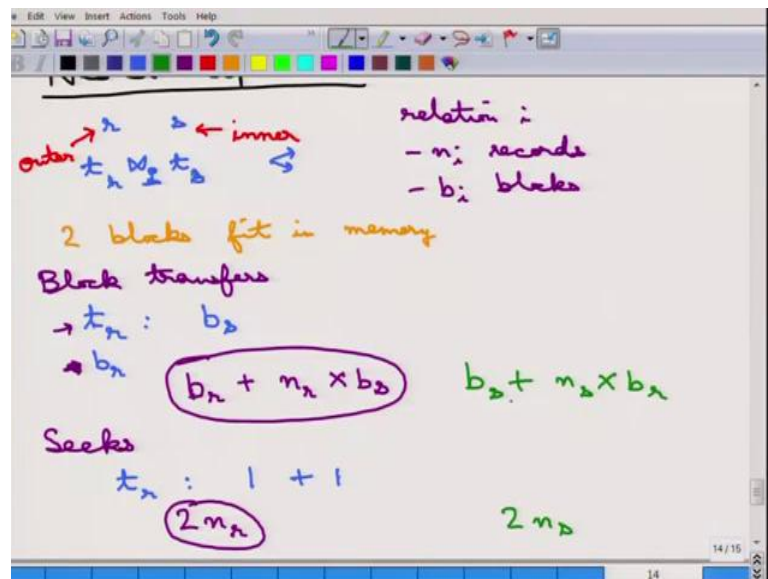 Edit View Insert Actions Tools Help
r s ← inner
outer
t_r ⋈ t_s <
relation i
- n_i records
- b_i blocks
2 blocks fit in memory
Block transfers
→ t_r : b_s
b_r
b_r + n_r × b_s
b_s + n_s × b_r
Seeks
t_r : 1 + 1
2 n_r
2 n_s
14 / 15
14